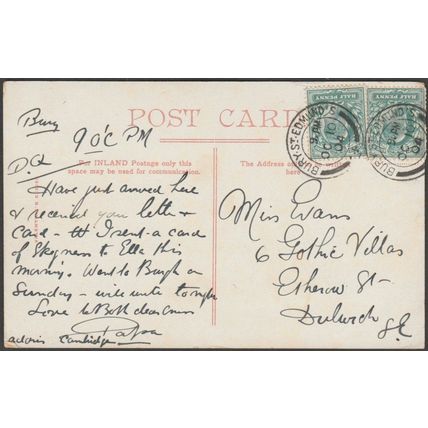 Bury
9 O'C PM
POST CARD
HALF PENNY
HALF PENNY
BURY-ST-EDMUND'S
9 PM
OC 10
04
BURY-ST-EDMUND'S
For INLAND Postage only this
space may be used for communication.
The Address
here
D.d
Have just arrived here
& received your letter &
Card - I sent a card
of Skegness to Ella this
morning. Went to Burgh on
Sunday - will write tonight
Love to Both dear ones
Papa
Cambridge
Miss Evans
6 Gothic Villas
Etherow St-
Dulwich
S.E